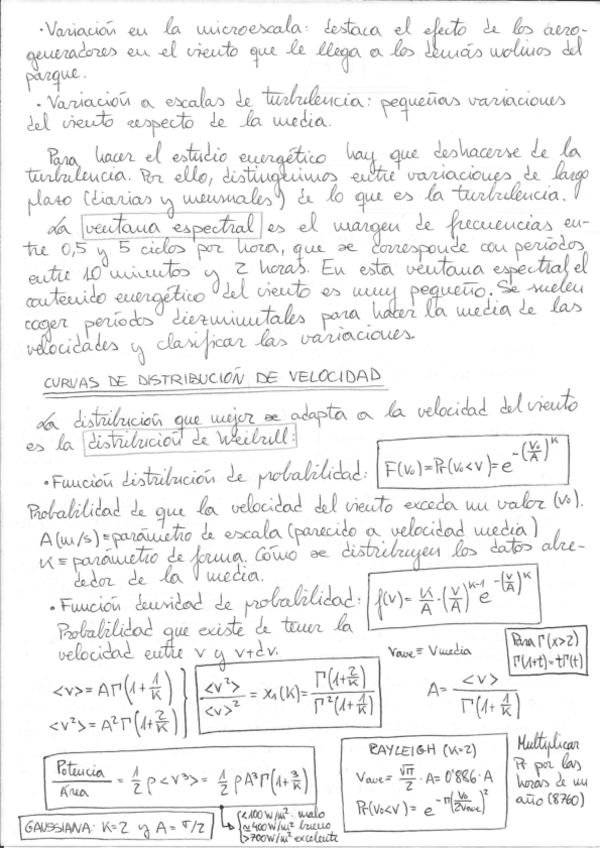 · Variación en la microescala: destaca el efecto de los aero-
generadores en el viento que le llega a los demás molinos del
parque.
· Variación a escalas de turbulencia: pequeñas variaciones
del viento respecto de la media.
Para hacer el estudio energético hay que deshacerse de la
turbulencia. Por ello, distinguimos entre variaciones de largo
plazo (diarias y mensuales) de lo que es la turbulencia.
La ventana espectral es el margen de frecuencias en-
tre 0,5 y 5 ciclos por hora, que se corresponde con periodos
entre 10 minutos y 2 horas. En esta ventana espectral, el
contenido energético del viento es muy pequeño. Se suelen
coger períodos diezminutales para hacer la media de las
velocidades y clasificar las variaciones.
CURVAS DE DISTRIBUCIÓN DE VELOCIDAD
La distribución que mejor se adapta a la velocidad del viento
es la distribución de Weibull:
· Función distribución de probabilidad: F(v₀) = Pr(v₀<v) = e^-(v₀/A)^K
Probabilidad de que la velocidad del viento exceda un valor (v₀).
A (m/s) ≡ parámetro de escala (parecido a velocidad media)
K ≡ parámetro de forma. Cómo se distribuyen los datos alre-
dedor de la media.
· Función densidad de probabilidad: f(v) = K/A · (v/A)^(K-1) e^-(v/A)^K
Probabilidad que existe de tener la
velocidad entre v y v+dv.
Vave ≡ Vmedia
Para Γ(x>2)
Γ(1+t) = tΓ(t)
<v> = AΓ(1+1/K)
<v²> = A²Γ(1+2/K)
<v²>/<v>² = x₁(K) = Γ(1+2/K)/Γ²(1+1/K)
A = <v>/Γ(1+1/K)
Potencia/Área = 1/2 ρ<v³> = 1/2 ρA³Γ(1+3/K)
<100 W/m² malo
≈400 W/m² bueno
>700 W/m² excelente
RAYLEIGH (K=2)
Vave = √π/2 · A = 0'886·A
Pr(v₀<v) = e^-π(v₀/2Vave)²
Multiplicar
Pr por las
horas de un
año (8760)
GAUSSIANA: K=2 y A = σ/2